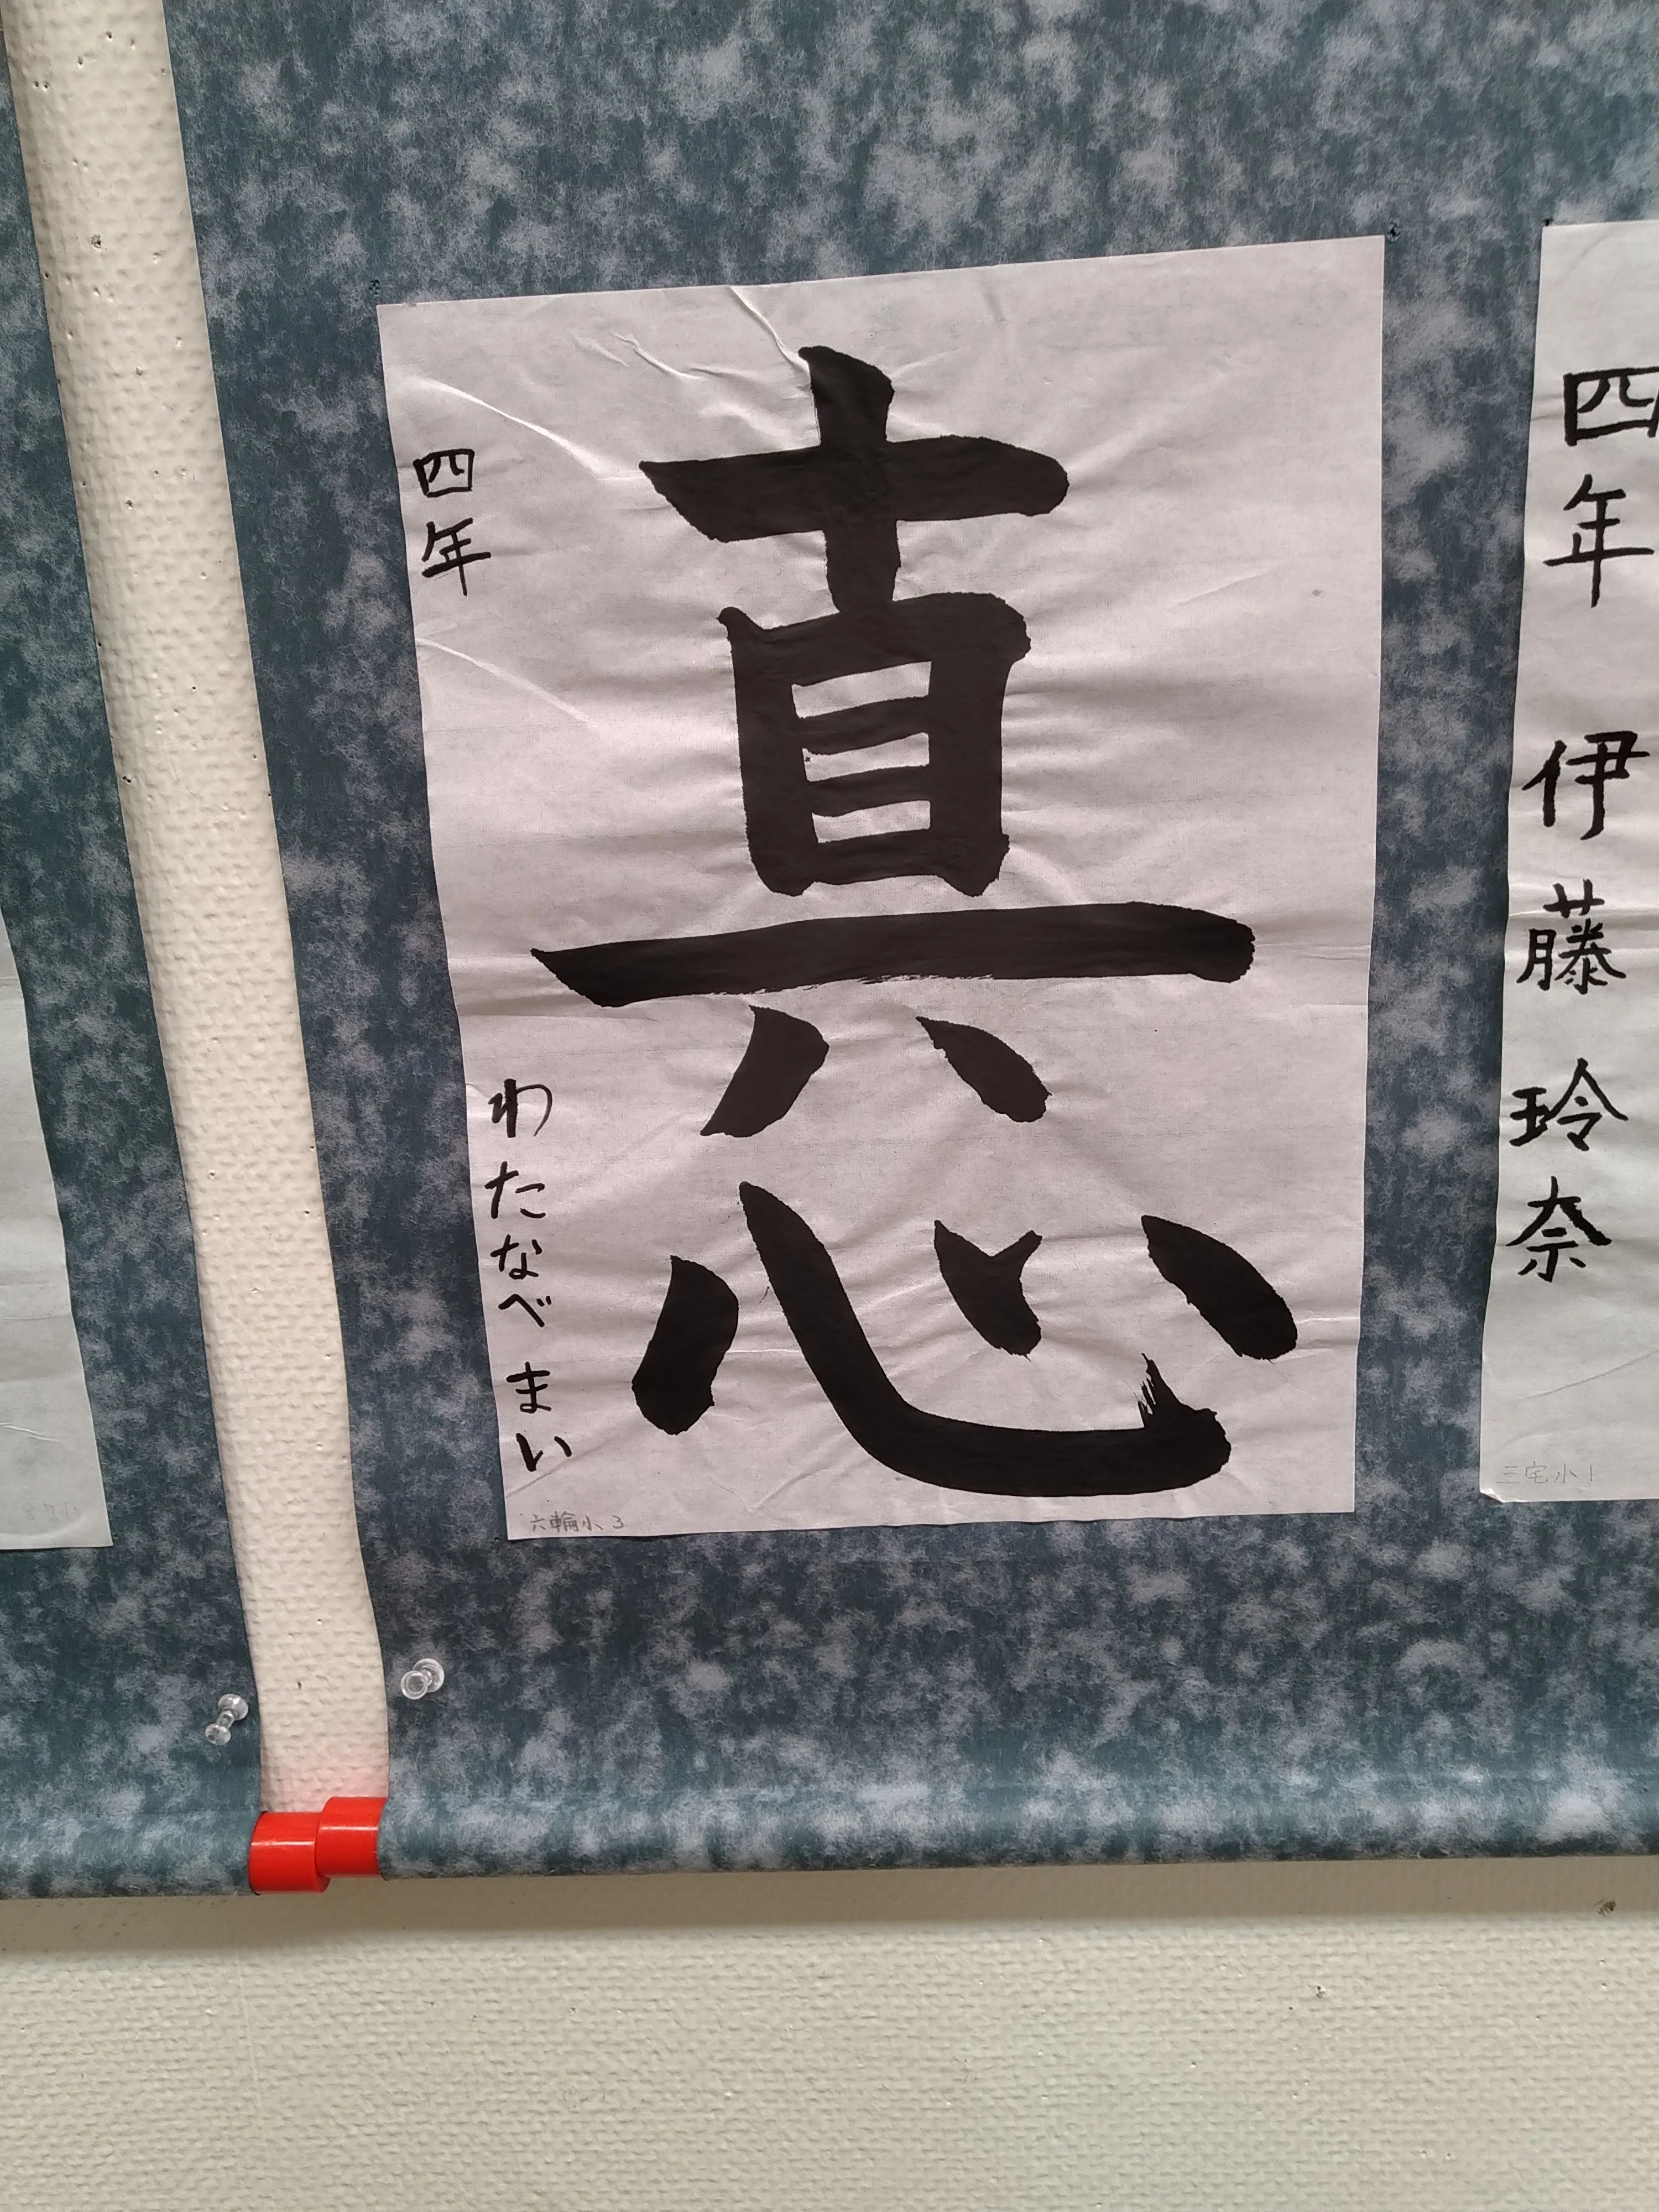 四年 伊藤 玲奈
三宅小1
真心
四年 わたなべ まい
六輪小3